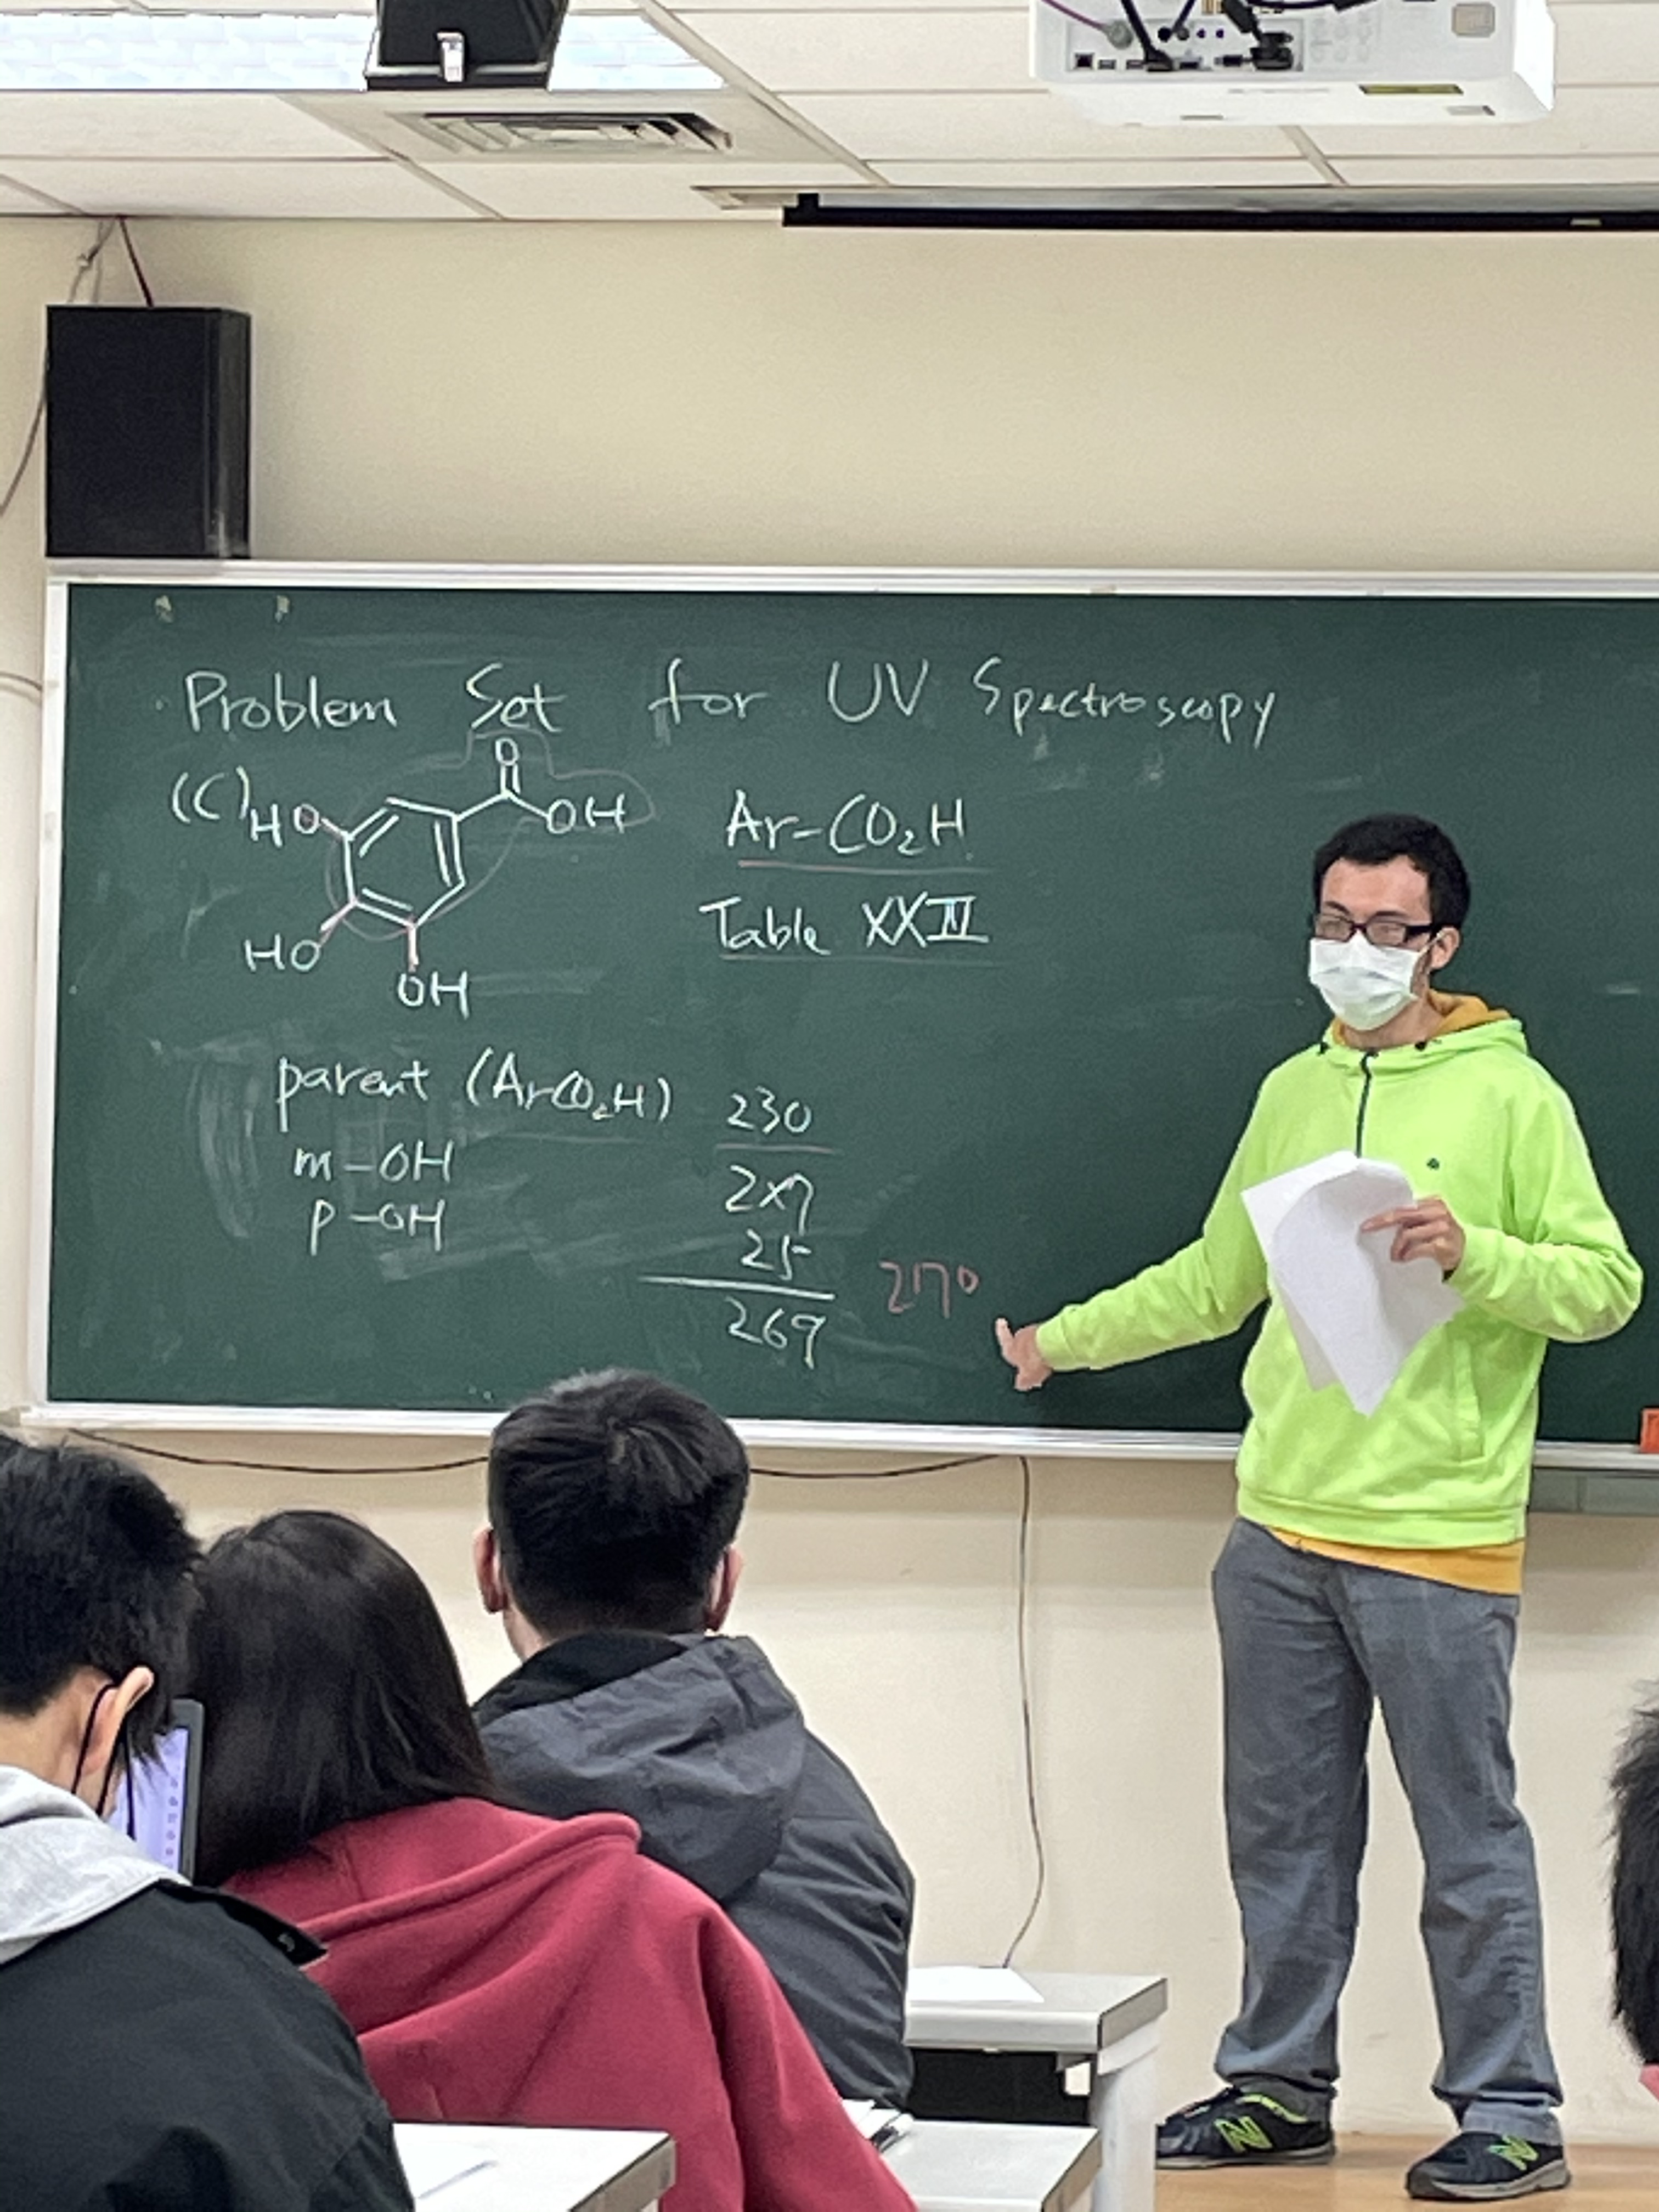 Problem Set for UV Spectroscopy
(C)
O
HO
OH
HO
OH
Ar-CO₂H
Table XXIV
parent (ArCO₂H) 230
m-OH 2×7
p-OH 25
269 270
N
N